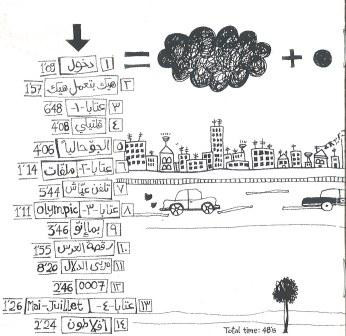 ١ دخول 1'09
٢ هيك بتعمل هيك 1'57
٣ عتابا -١- 6'48
٤ قلتيلي 4'08
٥ الجو 4'06
٦ عتابا -٢- ملفات 1'14
٧ تلفن عيّاش 5'44
٨ عتابا -٣- Olympic 1'11
٩ بما إنّو 3'46
١٠ رقصة العرس 1'55
١١ مربى الدلال 8'20
١٢ 0007 2'46
١٣ عتابا -٤- Mai-Juillet 1'26
١٤ أفلاطون 2'24
Total time: 48'6